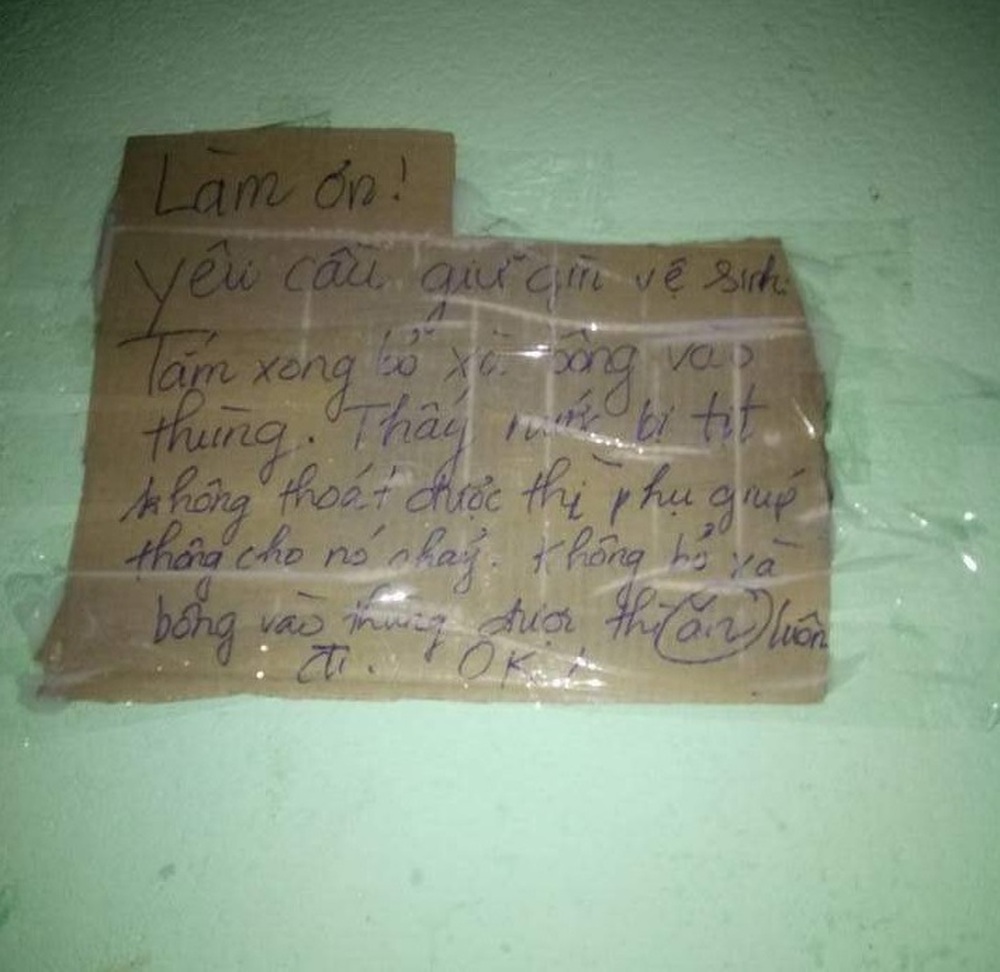 Làm ơn!
Yêu cầu giữ gìn vệ sinh.
Tắm xong bỏ xà bông vào
thùng. Thấy nước bị tịt
không thoát được thì phụ giúp
thông cho nó nhay. Không bỏ xà
bông vào thùng được thì ăn luôn
đi. OK!